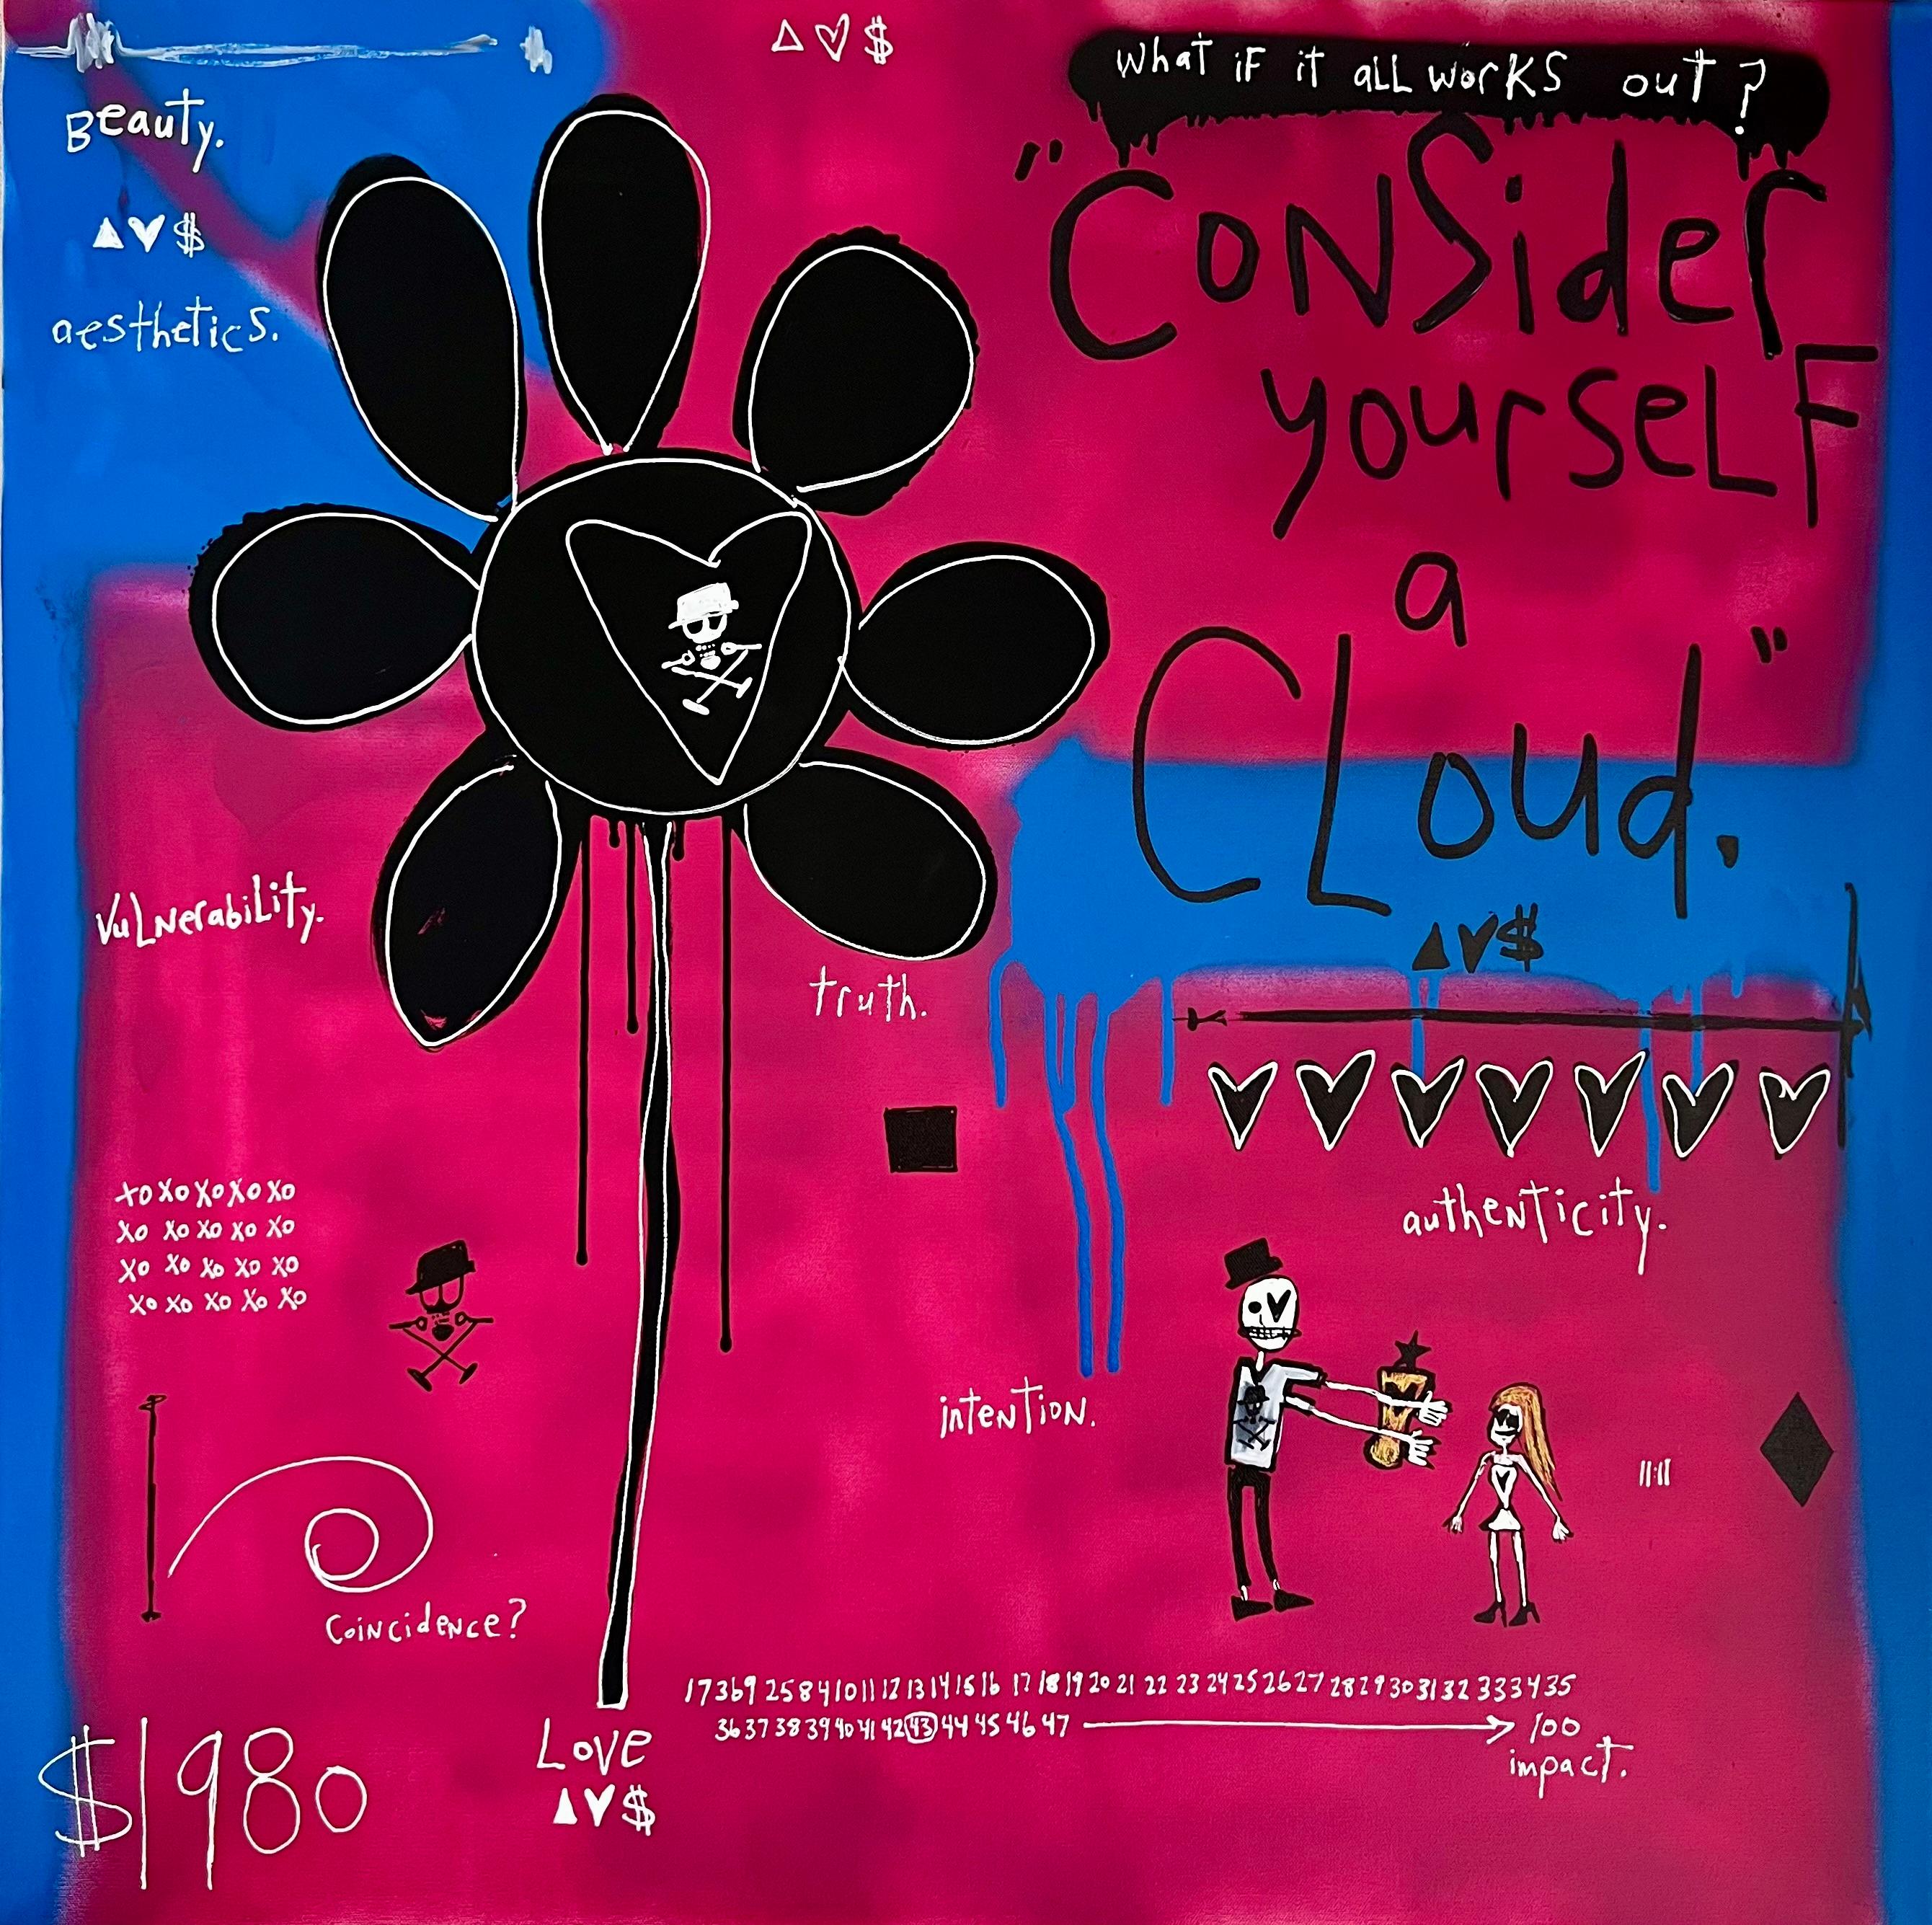 What iF it aLL worKS out?
Beauty.
"CoNSider
aesthetics.
yourseLF
a
CLoud."
VuLNerabiLity.
truth.
authenticity.
xo xo xo xo xo
xo xo xo xo xo
xo xo xo xo xo
xo xo xo xo xo
intentioN.
11:11
CoiNcideNce?
17369 25 8 4 10 11 12 13 14 15 16 17 18 19 20 21 22 23 24 25 26 27 28 29 30 31 32 33 34 35
36 37 38 39 40 41 42 43 44 45 46 47 → 100
impact.
$1980
Love